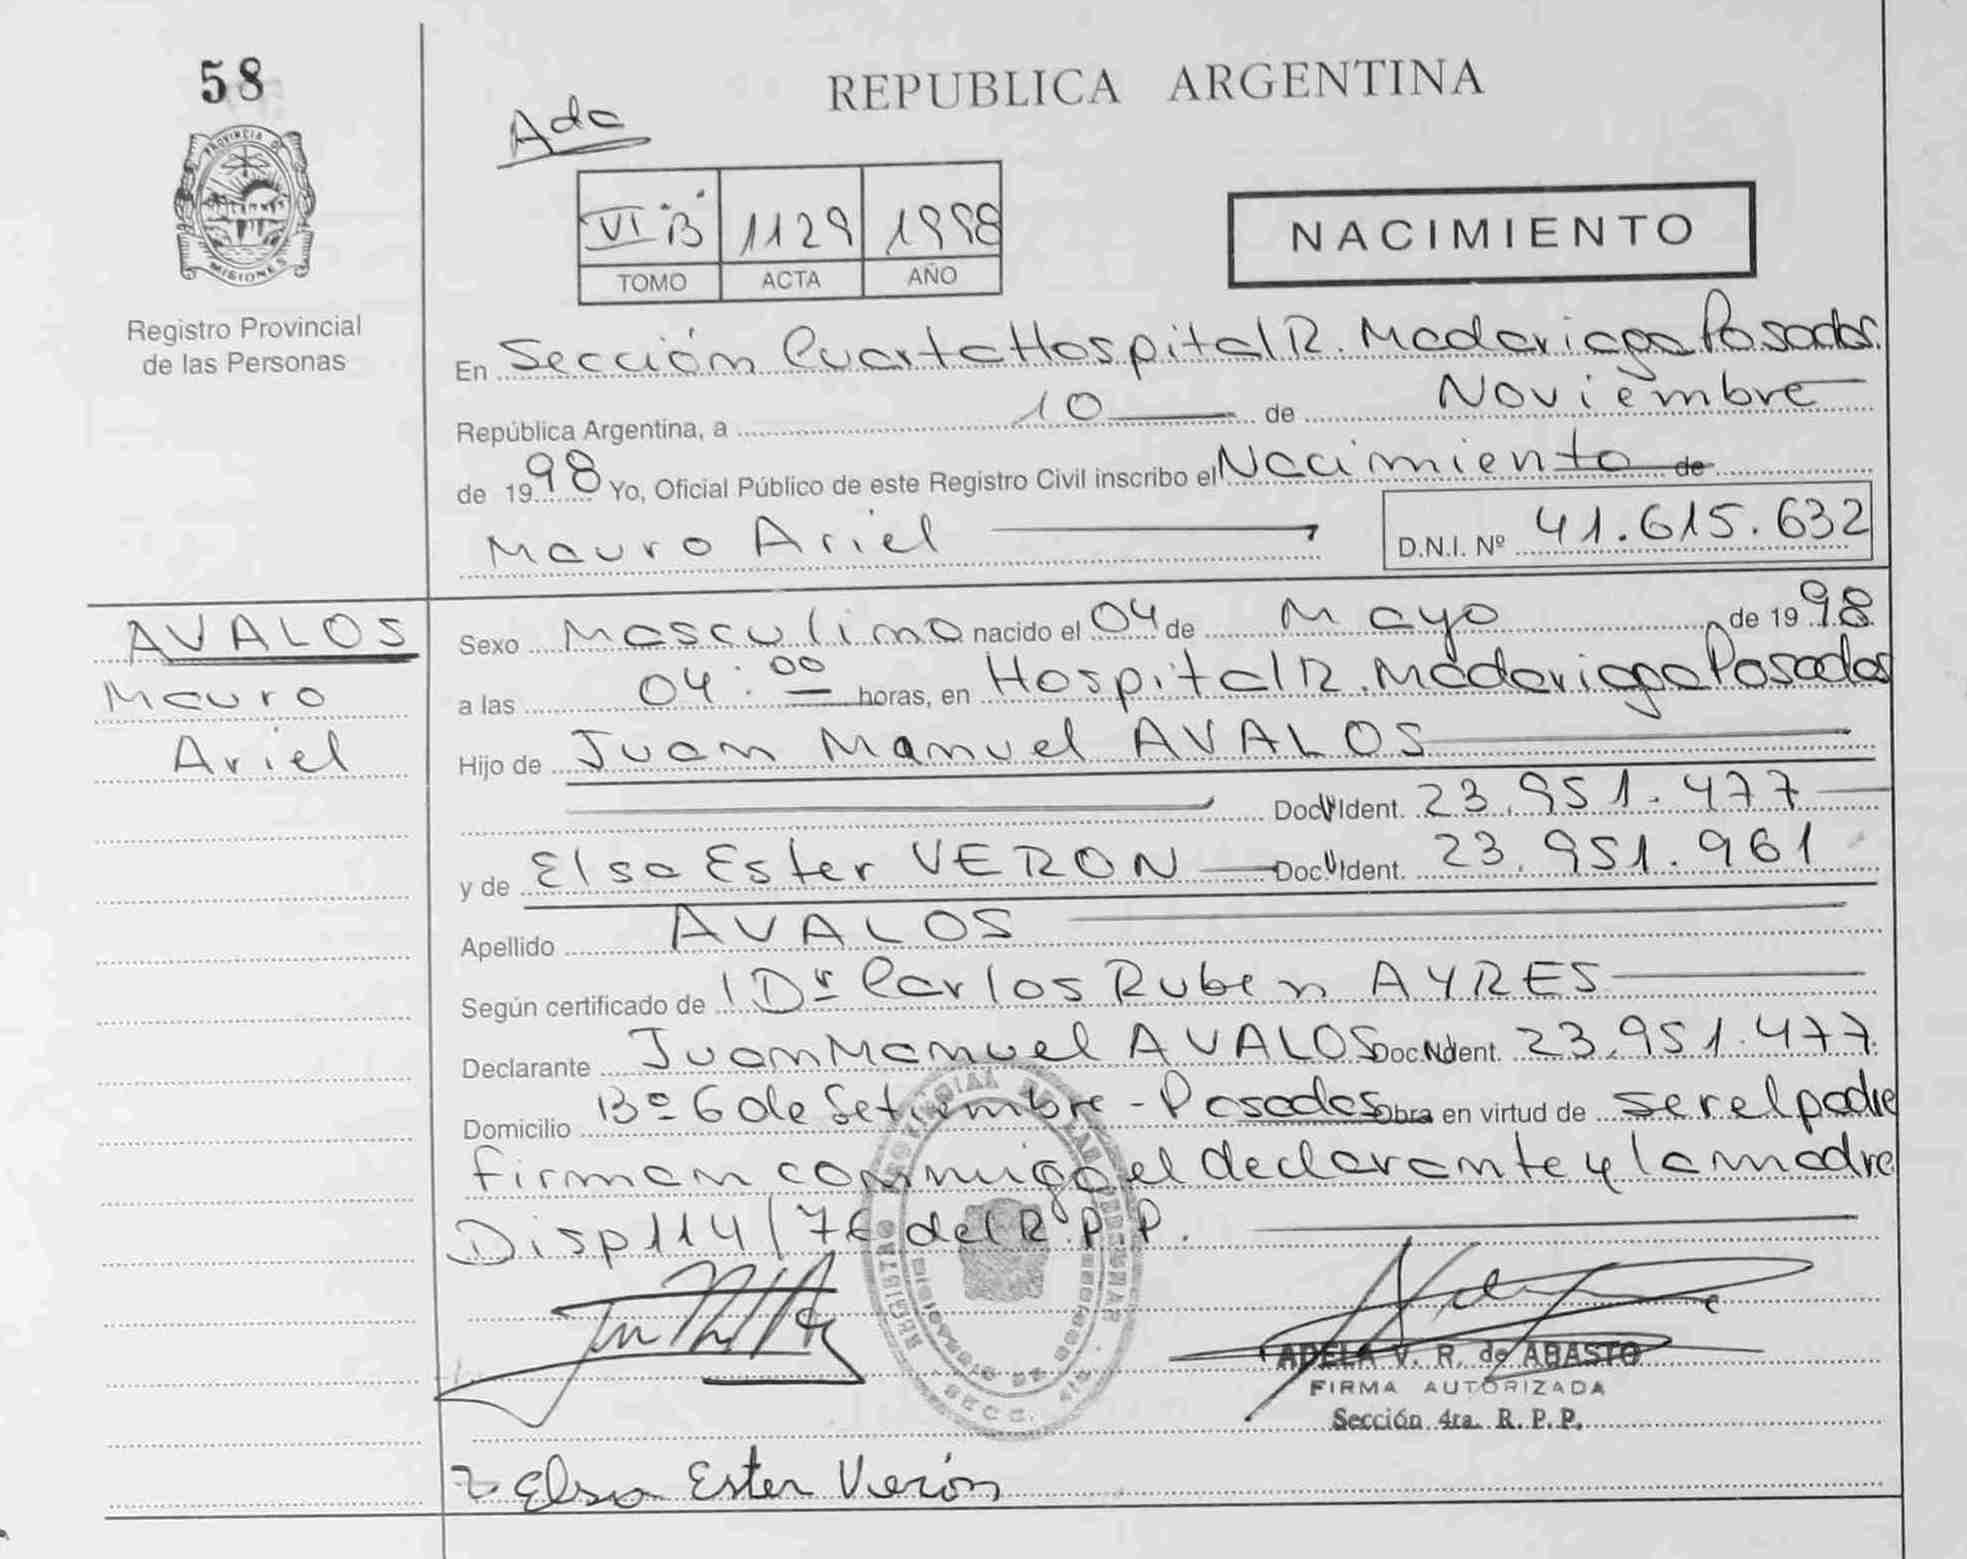 58
REPUBLICA ARGENTINA
Ada
PROVINCIA DE
MISIONES
VI "B" 1129 1998
TOMO ACTA AÑO
NACIMIENTO
Registro Provincial
de las Personas
En Sección Cuarta Hospital R. Madariaga Posadas
República Argentina, a 10 de Noviembre
de 1998 Yo, Oficial Público de este Registro Civil inscribo el Nacimiento de
Mauro Ariel D.N.I. Nº 41.615.632
AVALOS
Mauro
Ariel
Sexo Masculino nacido el 04 de Mayo de 1998
a las 04:00 horas, en Hospital R. Madariaga Posadas
Hijo de Juan Manuel AVALOS
Doc. Ident. 23.951.477
y de Elsa Ester VERON Doc. Ident. 23.951.961
Apellido AVALOS
Según certificado de Dr Carlos Ruben AYRES
Declarante Juan Manuel AVALOS Doc. Ident. 23.951.477
Domicilio Bº 6 de Setiembre - Posadas Obra en virtud de ser el padre
firman conmigo el declarante y la madre
Disp 114/76 del R.P.P.
ADELA V. R. de ABASTO
FIRMA AUTORIZADA
Sección 4ta. R. P. P.
Elsa Ester Verón